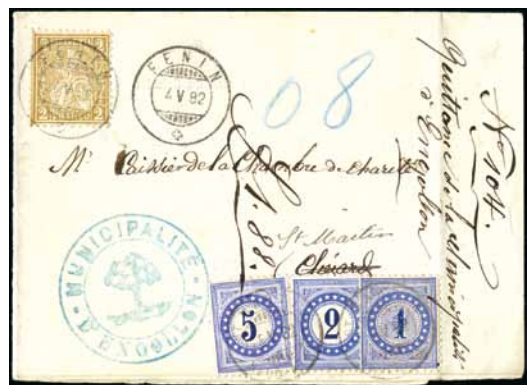 FENIN
2
2
FENIN
4 V 82
08
Mr Caissier de la Chambre de charité
St Martin
Chézard
MUNICIPALITÉ
D'ENGOLLON
5
2
1
No 104.
Quittance de la Municipalité
d'Engollon